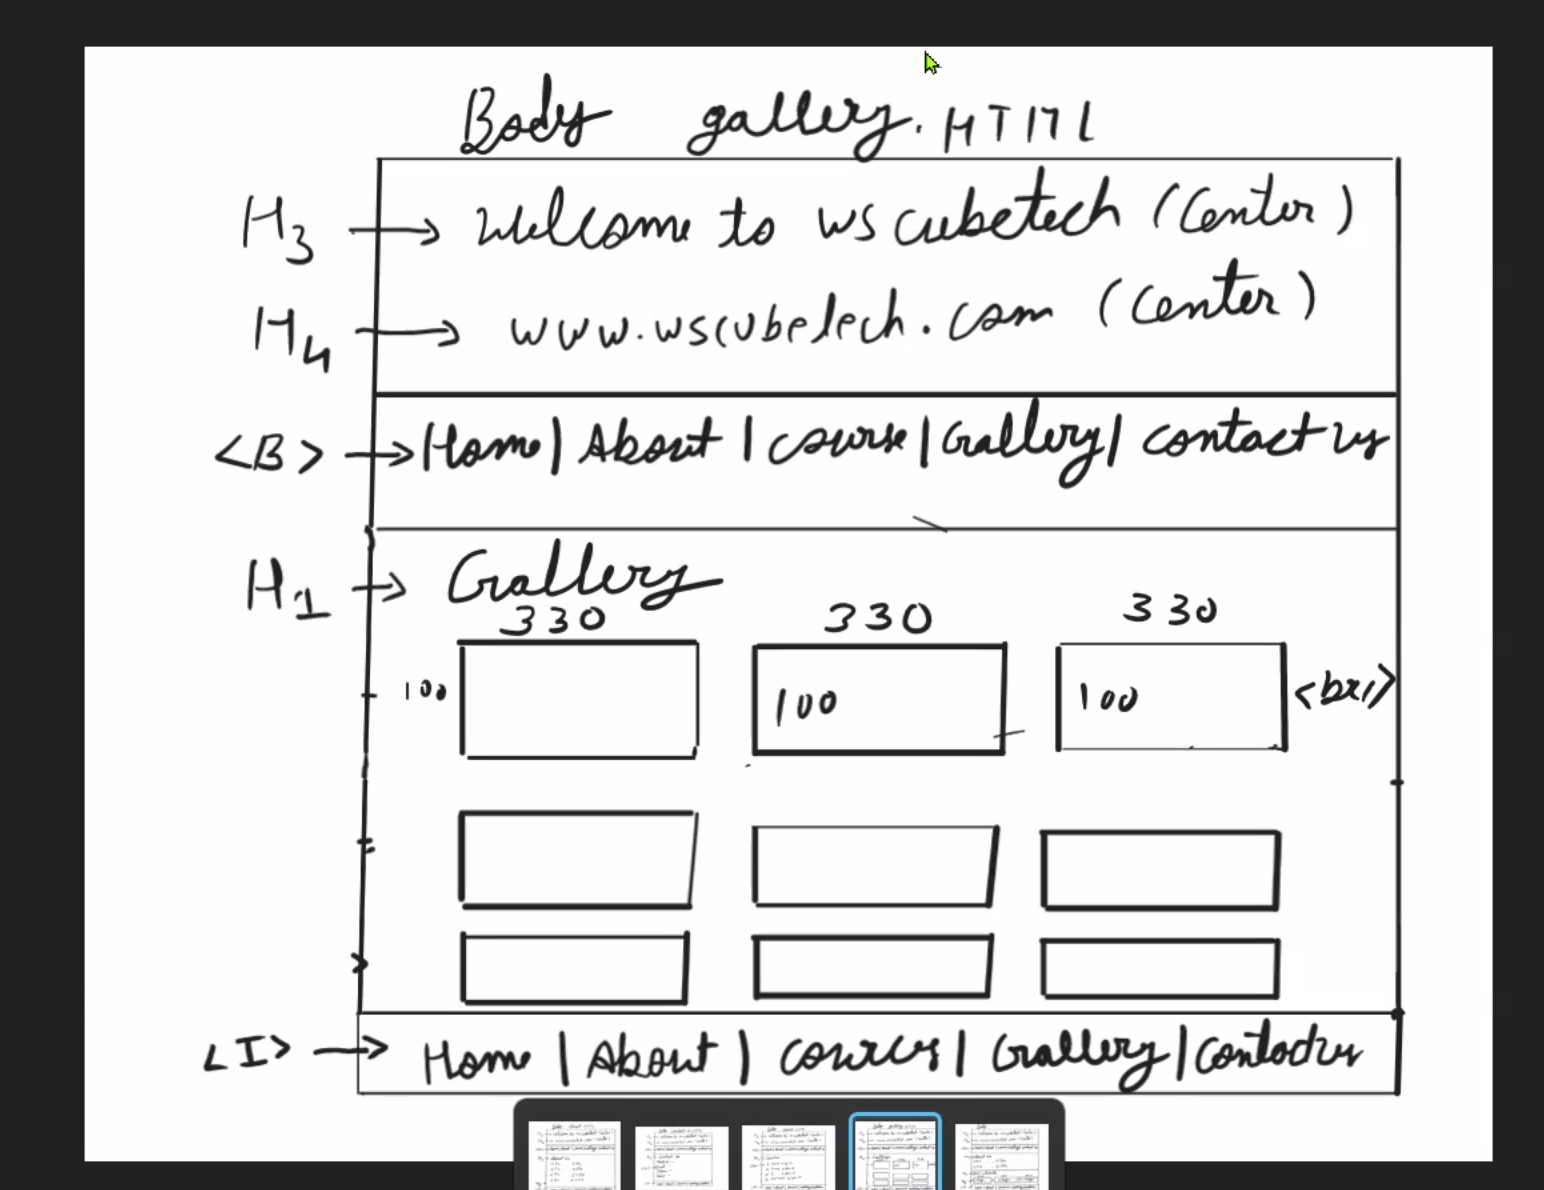 Body gallery.HTML
H3 → Welcome to wscubetech (Center)
H4 → www.wscubetech.com (Center)
<B> → Home | About | course | Gallery | contact us
H1 → Gallery
330 330 330
100 100 100 <br/>
<I> → Home | About | cources | Gallery | Contact us